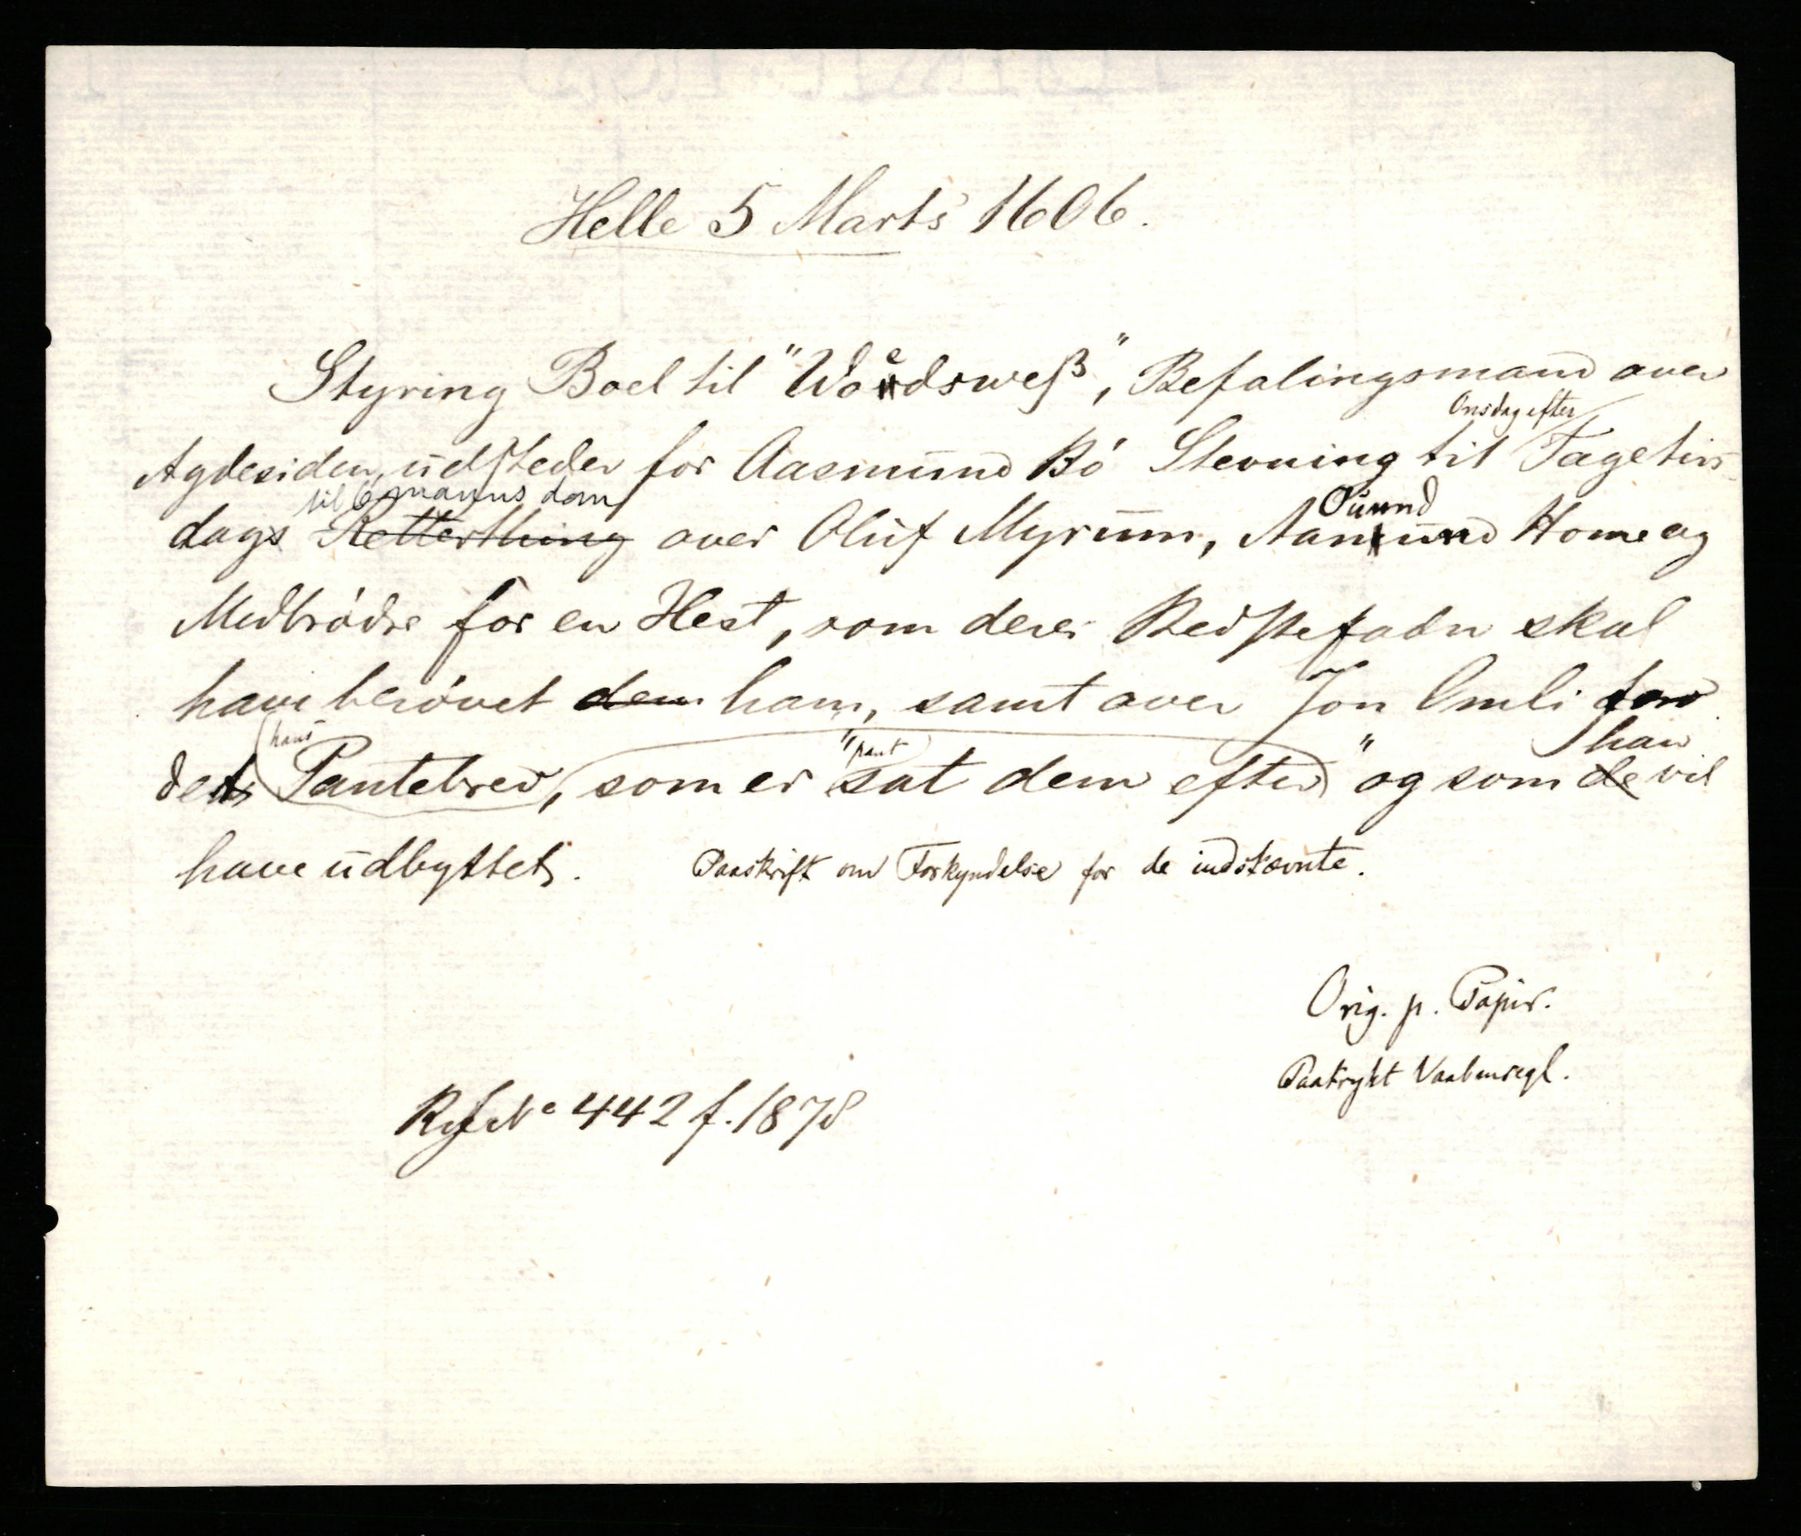 Helle 5 Marts 1606.
Styring Boel til "Woedsweß", Befalingsmand over
Onsdag efter
Agdesiden, udsteder for Aasmund Bö Stevning til Fagetirs
til 6 manns dom
dags Retterthing over Oluf Myrum, Aanund Home og
Ouund
Medbrödre for en Hest, som deres Bedstefader skal
have berövet dem ham, samt over Jon Omli for
hans "pant han
det Pantebrev, som er sat dem efter" og som de vil
have udbyttet. Paaskrift om Forkyndelse for de indstævnte.
Orig. p. Papir.
Paatrykt Vaabensegl.
Rgf No 442 f. 1878